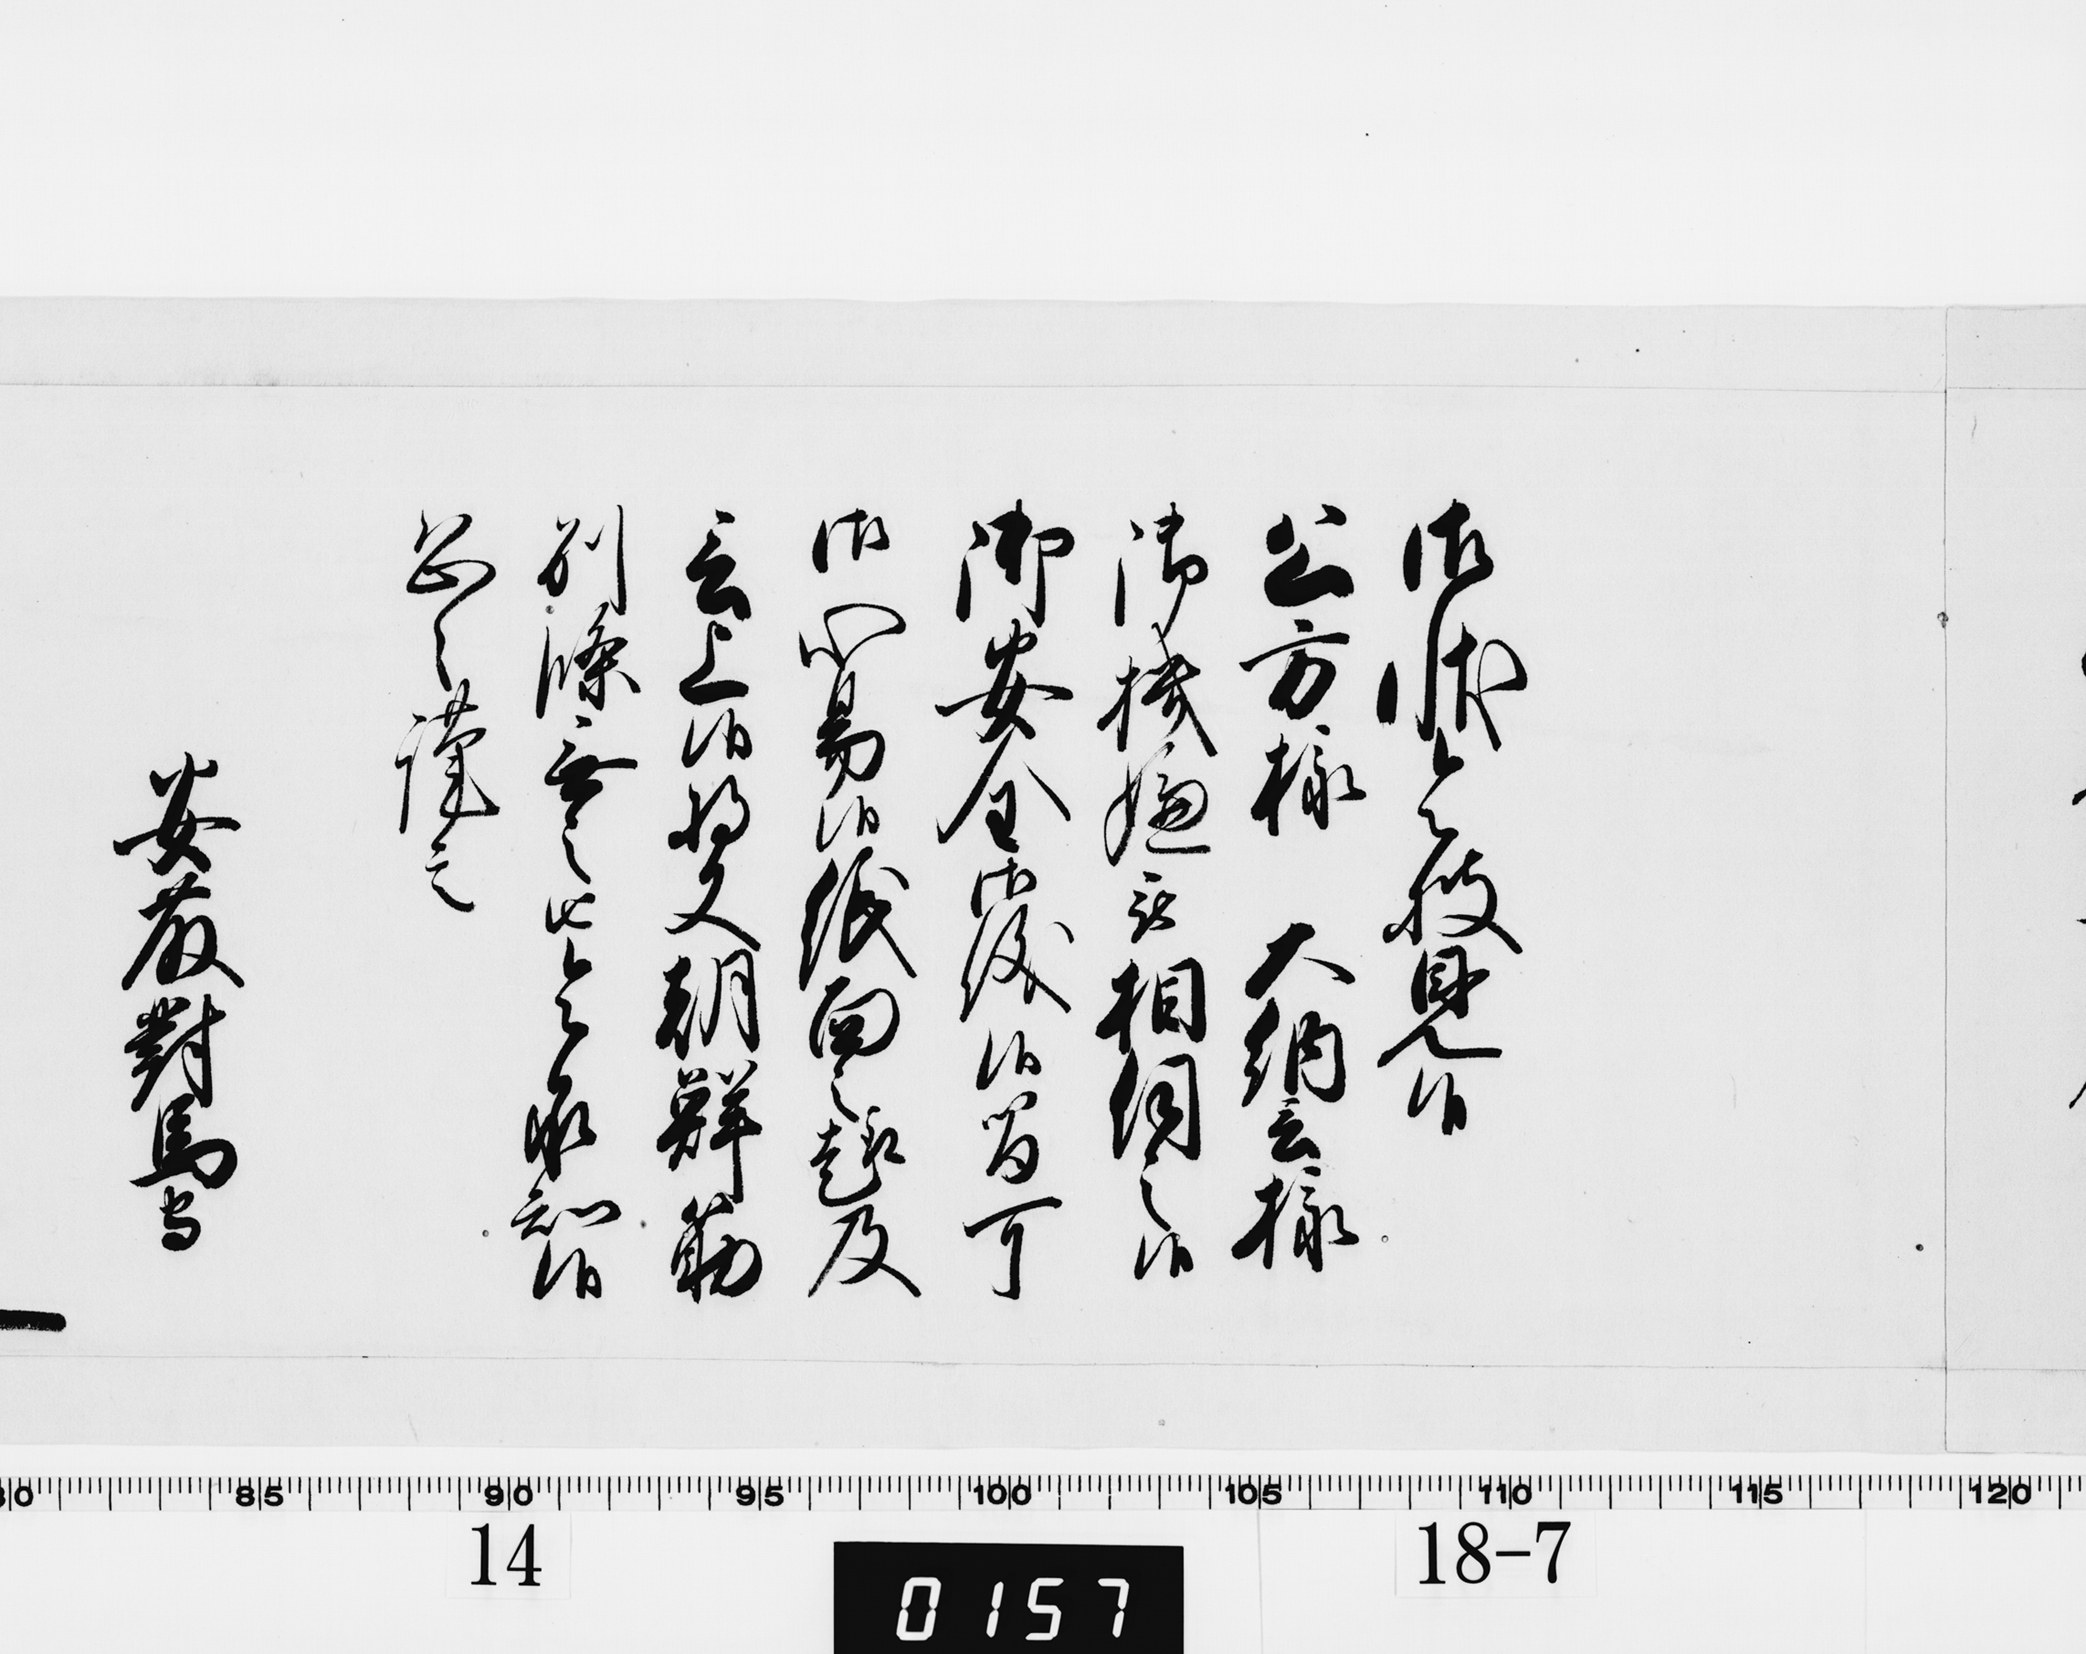 御状令披見候
公方様 大納言様
御機嫌被相伺之候
御安全御儀候間可
御心易候紙面之趣及
言上候将又朝鮮筋
別條無之旨令承知候
恐々謹言
安藤對馬守
80 85 90 95 100 105 110 115 120
14 18-7
0157